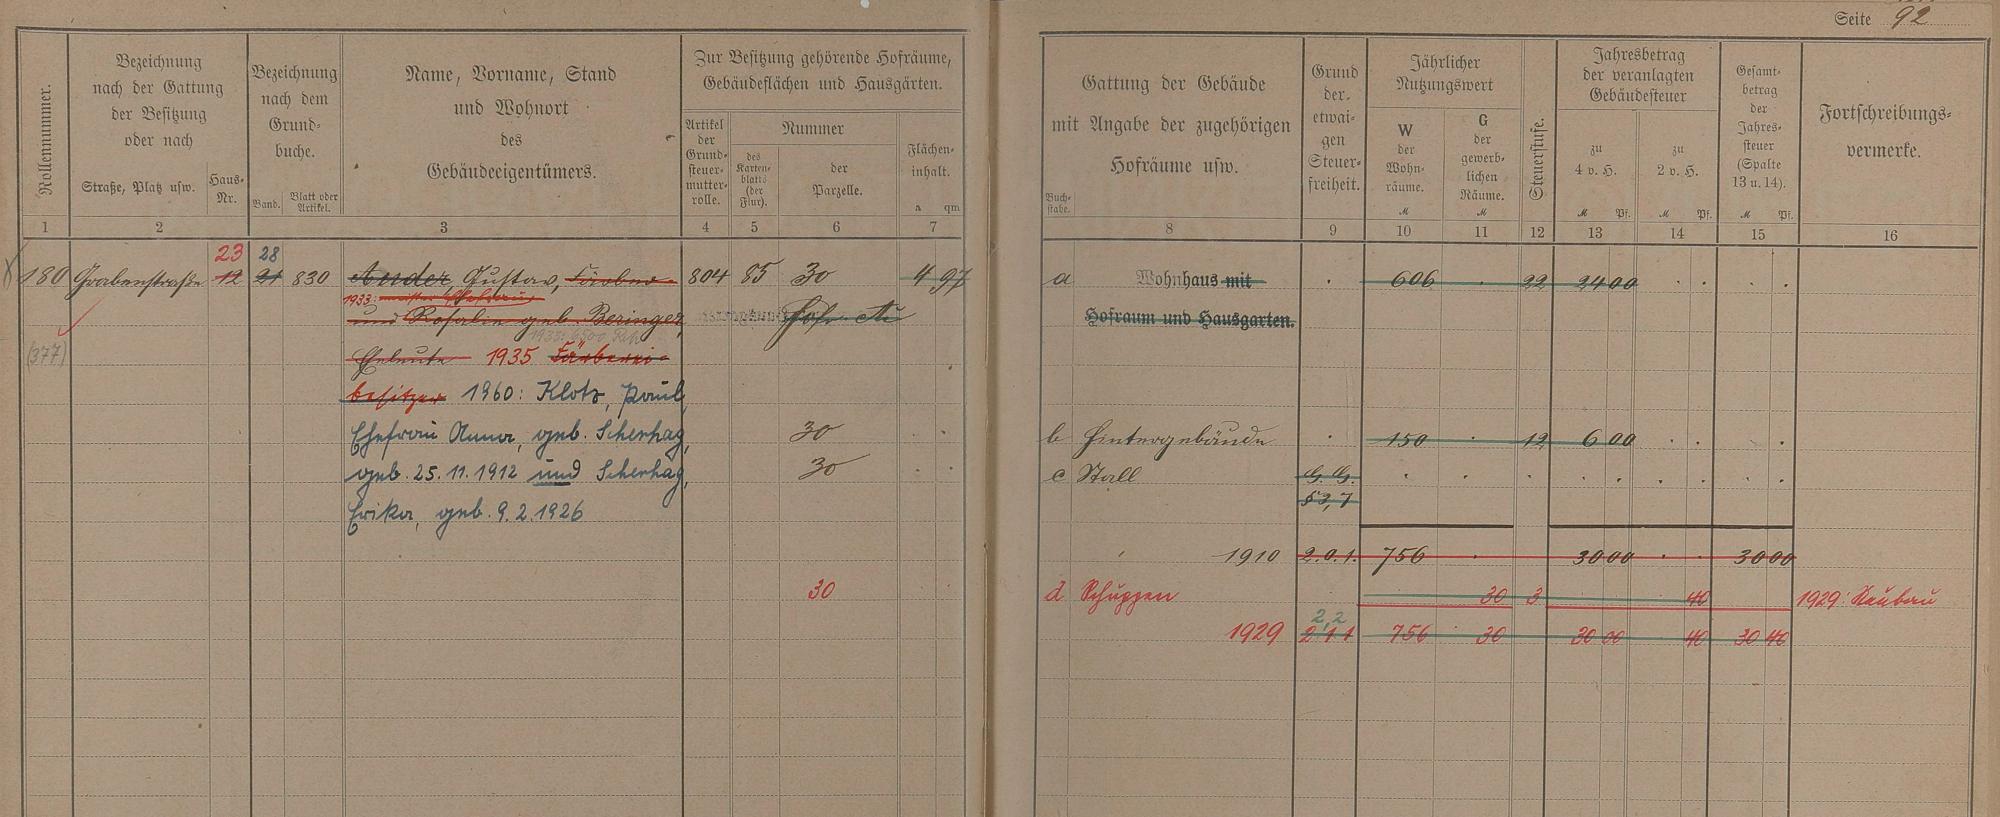 Seite 92
Rollennummer.
Bezeichnung
nach der Gattung
der Besitzung
oder nach
Straße, Platz usw.
Haus-
Nr.
Bezeichnung
nach dem
Grund-
buche.
Band.
Blatt oder
Artikel.
Name, Vorname, Stand
und Wohnort
des
Gebäudeeigentümers.
Zur Besitzung gehörende Hofräume,
Gebäudeflächen und Hausgärten.
Artikel
der
Grund-
steuer-
mutter-
rolle.
Nummer
des
Karten-
blatts
(der
Flur).
der
Parzelle.
Flächen-
inhalt.
a qm
Gattung der Gebäude
mit Angabe der zugehörigen
Hofräume usw.
Buch-
stabe.
Grund
der
etwai-
gen
Steuer-
freiheit.
Jährlicher
Nutzungswert
W
der
Wohn-
räume.
M
G
der
gewerb-
lichen
Räume.
M
Steuerstufe.
Jahresbetrag
der veranlagten
Gebäudesteuer
zu
4 v. H.
M Pf.
zu
2 v. H.
M Pf.
Gesamt-
betrag
der
Jahres-
steuer
(Spalte
13 u. 14).
M Pf.
Fortschreibungs-
vermerke.
1 2 3 4 5 6 7 8 9 10 11 12 13 14 15 16
23 28
180 Grabenstraße 12 21 830 Ander, Gustav, Färber 804 85 30 4 97
1933:
und Rosalie geb. Beringer,
(377)
Eheleute 1935 Färberei-
besitzer 1960: Klotz, Paul,
Ehefrau Anna, geb. Scherhag, 30
geb. 25.11.1912 und Scherhag, 30
Erika, geb. 9.2.1926
30
a Wohnhaus mit 606 22 24 00
Hofraum und Hausgarten.
b Hintergebäude 150 12 6 00
c Stall G. G.
§ 3,7
1910 2.0.1. 756 30 00 30 00
d Schuppen 30 3 40 1929: Neubau
2,2
1929 2 1 1 756 30 30 00 40 30 40